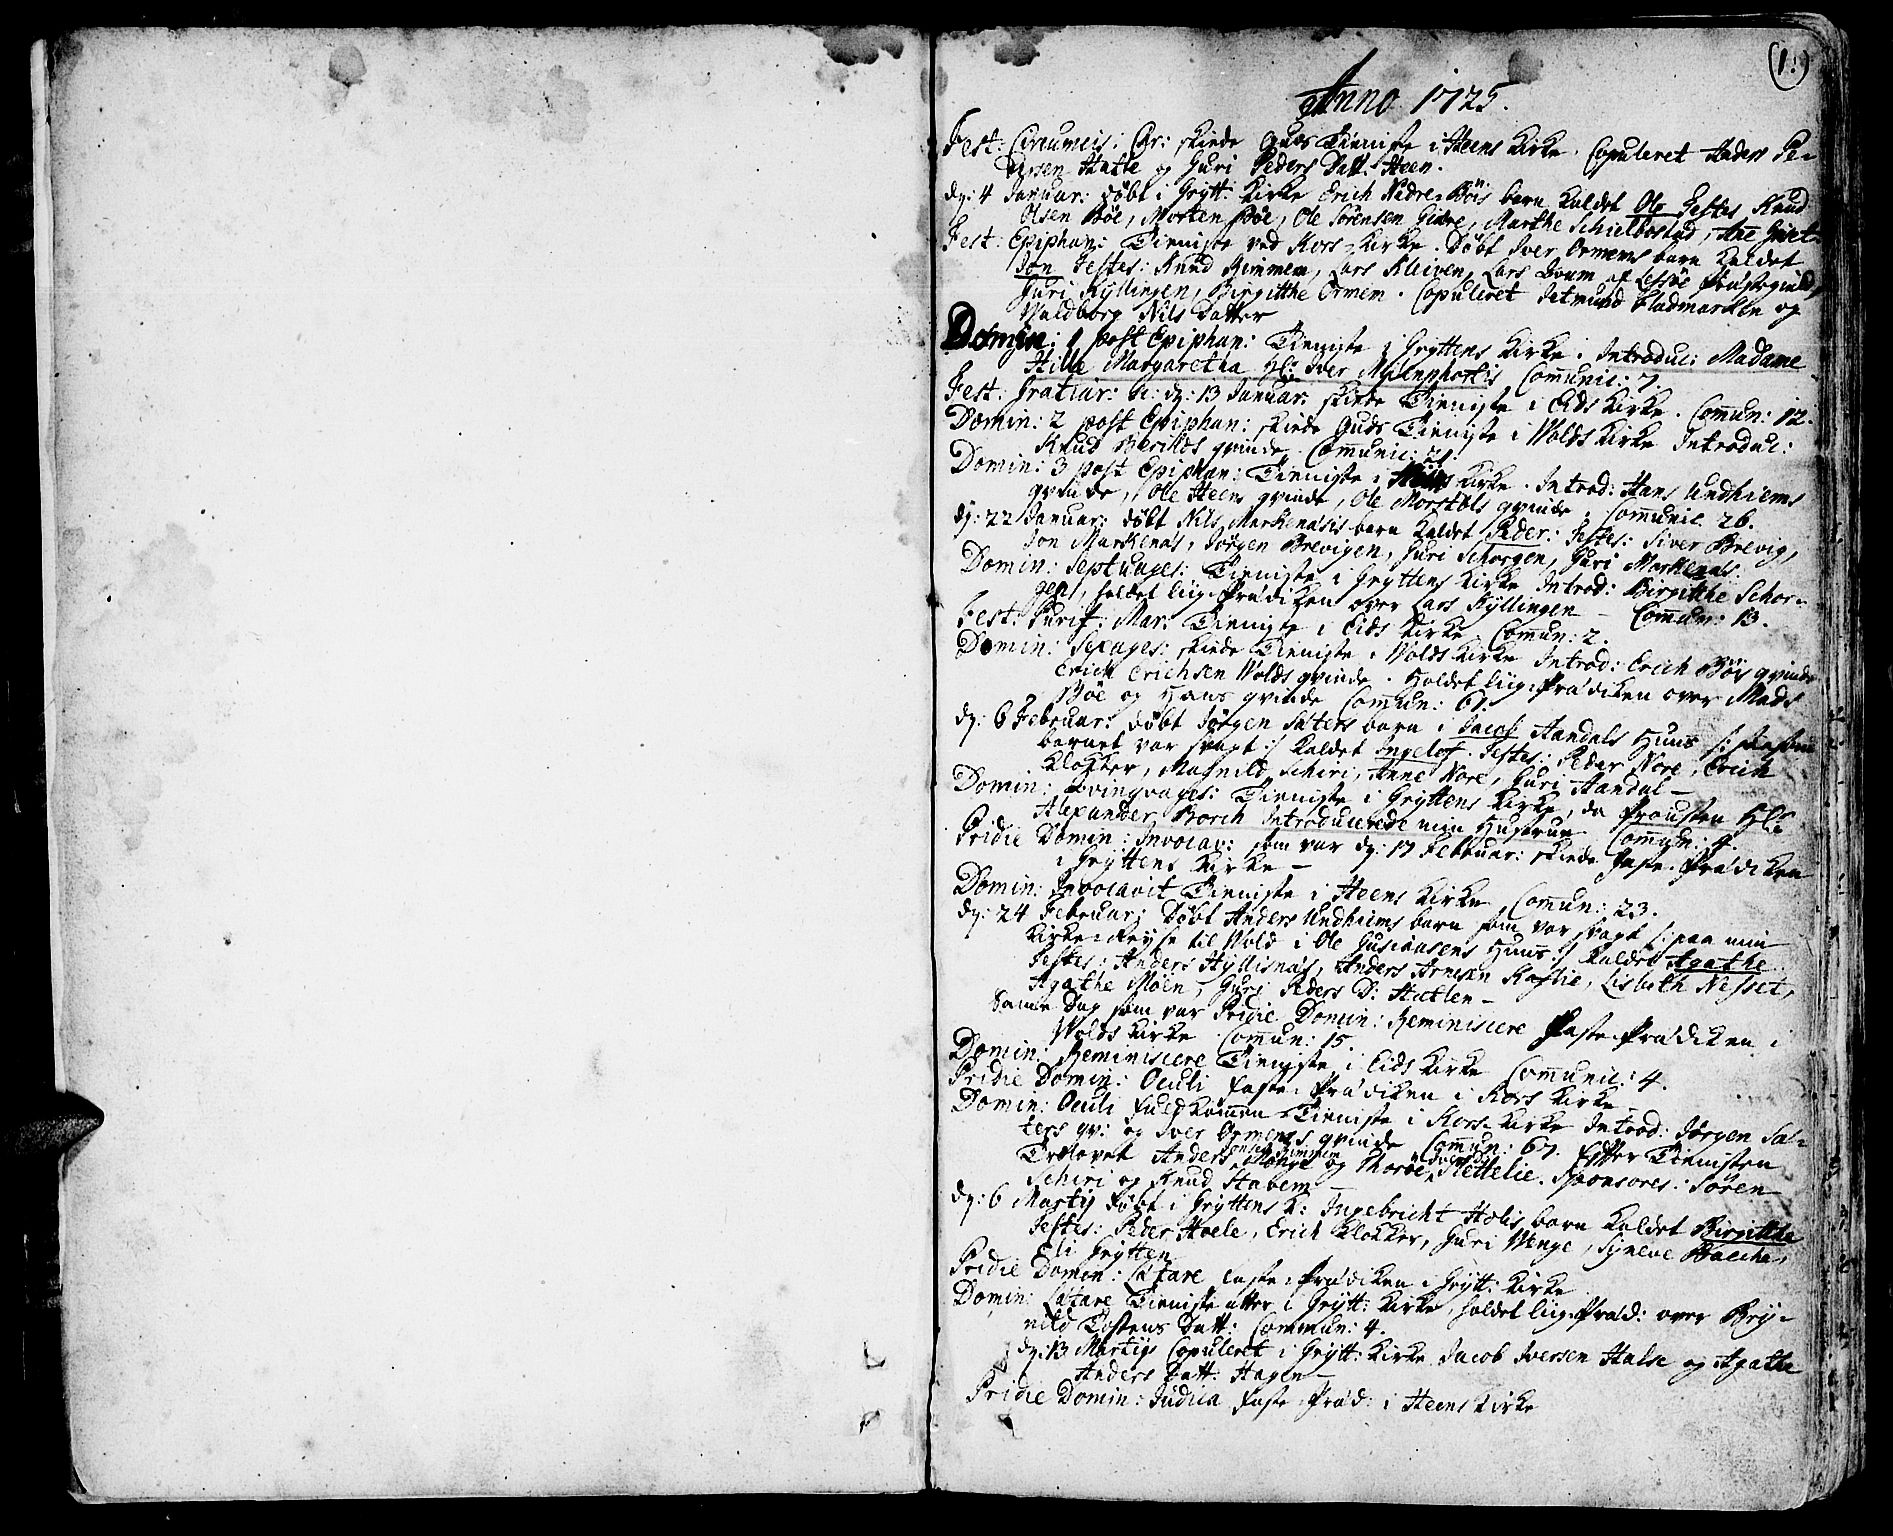 (1.)
Anno 1725.
Fest: Circumcis: Chr: skiede Guds Tieniste i Heens Kirke. Copuleret Anders Pe-
dersen Hatle og Guri Peders Datt. Heen.
dy: 4 Januar: døbt i Grytt: Kirke Erich Nedre-Bøis barn kaldet Ole Testes Knud
Olsen Bøe, Morten Bøe, Ole Sørensen, Marthe Schielbostad, Ane
Fest: Epiphan: Tieniste ved Kors-Kirke. Døbt Iver Ormems barn kaldet
Jon Testes: Knud Remmem, Lars Kleiven, Lars af Lessøe Præstegield,
Guri Kyllingen, Birgitthe Ormem. Copuleret Fladmarken og
Waldborg Nils Datter
Domin: 1 post Epiphan: Tieniste i Gryttens Kirke. Introduc: Madame
Hille Margaretha Hl: Iver Communic: 7.
Fest: Gratiar: a: dy: 13 Januar: skiede Tieniste i Eids Kirke. Commun: 12.
Domin: 2 post Epiphan: skiede Guds Tieniste i Wolds Kirke Introduc:
Knud qvinde. Communic: 21.
Domin: 3 post Epiphan: Tieniste i Heens Kirke. Introd: Hans Undhiems
qvinde, Ole Heens qvinde, Ole Morstøls qvinde. Communic. 26.
dy: 22 Januar: døbt Nils Markenæsis barn kaldet Peder: Testes: Siver Brevig,
Jon Markenæs, Jørgen Brevigen, Guri Schorgen, Guri Markenæs.
Domin: Septuages: Tieniste i Gryttens Kirke Introd: Birgitthe Schor-
gen, holdet liig-Prædiken over Lars Kyllingen - Commun: 13.
Fest: Purif: Mar: Tieniste i Eids Kirke Commun: 2.
Domin: Sexages: skiede Tieniste i Wolds Kirke Introd: Erich Bøis qvinde
Erich Erichsen Wolds qvinde. Holdet liig-Prædiken over Mads
Bøe og Hans qvinde Commun: 61.
dy: 6 Februar: døbt Jørgen Sæters barn i Jacob Aandals Huus
barnet var svagt :/ kaldet Ingelof. Testes: Peder Nore, Erich
Klokker, Magnild Schiri, Anne Nore, Guri Aandal -
Domin: Qvinqvages: Tieniste i Gryttens Kirke, da Prousten Hl:
Alexander Borch Introducerede min Hustrue Commun: 4.
Pridie Domin: Invocav: som var dy: 17 Februar: skiede Faste-Prædiken
i Gryttens Kirke -
Domin: Invocavit Tieniste i Heens Kirke Commun: 23.
dy: 24 Februar: Døbt Anders Undhiems barn som var svagt /: paa min
Kirke-Reyse til Wold i Ole Gusiaasens Huus :/ kaldet Agathe
Testes: Anders Hyllisnæs, Anders Arnesen Kaslie, Lisbeth Nesset,
Agathe Møen, Guri Peders D: Hatlen -
Samme Dag som var Pridie Domin: Reminiscere Faste-Prædiken i
Wolds Kirke Commun: 15.
Domin: Reminiscere Tieniste i Eids Kirke Communic: 4.
Pridie Domin: Oculi Faste-Prædiken i Kors Kirke
Domin: Oculi Fuldkommen Tieniste i Kors-Kirke Introd: Jørgen Sæ-
ters qv: og Iver Ormems qvinde Commun: 67. Efter Tienisten
Trolovet Anders Monge og Thoroe Slettelie. Sponsores: Søren
Schiri og Knud Stavem -
dy: 6 Martij døbt i Gryttens K: Ingebricht Holis barn kaldet Birgitthe
Testes: Peder Hoele, Erich Klokker, Guri Wenge, Syneve Bacche,
Eli Grytten
Pridie Domin: Lætare Faste-Prædiken i Grytt: Kirke
Domin: Lætare Tieniste atter i Grytt: Kirke, holdet liig-Præd: over Bry-
nild Tostens Datt: Commun: 4.
dy: 13 Martij Copuleret i Grytt: Kirke Jacob Iversen Halse og Agathe
Anders Datt: Hagen -
Pridie Domin: Judica Faste-Præd: i Heens Kirke